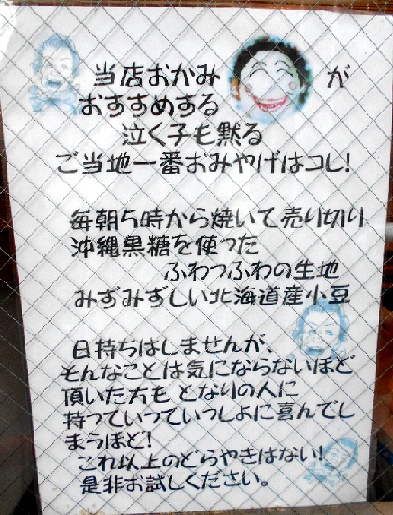 当店おかみ が
おすすめする
泣く子も黙る
ご当地一番おみやげはコレ!
毎朝5時から焼いて売り切り
沖縄黒糖を使った
ふわっふわの生地
みずみずしい北海道産小豆
日持ちはしませんが、
そんなことは気にならないほど
頂いた方も となりの人に
持っていっていっしょに喜んでし
まうほど!
これ以上のどらやきはない!
是非お試しください。